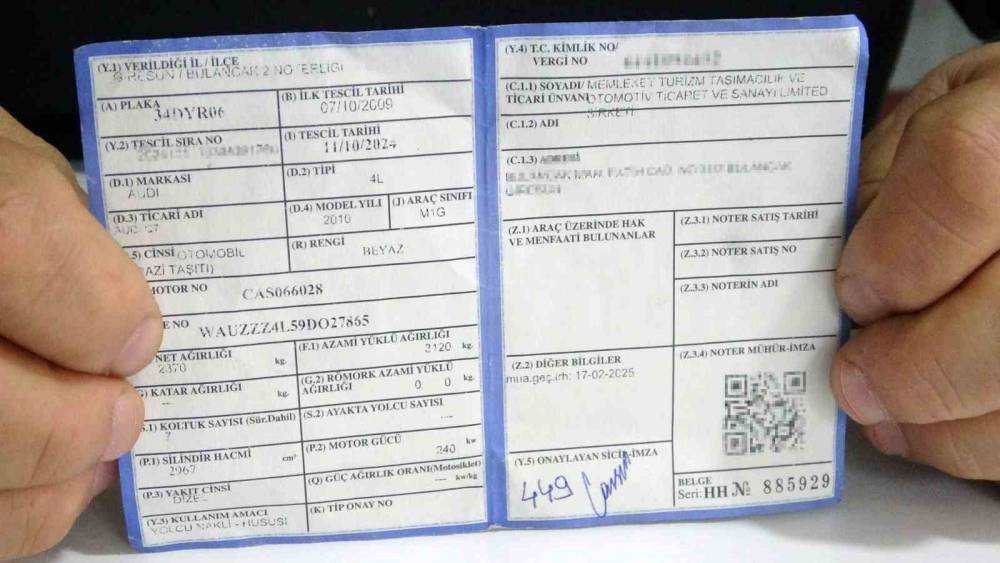 (Y.1) VERİLDİĞİ İL / İLÇE
GİRESUN / BULANCAK 2 NOTERLİĞİ
(A) PLAKA
34DYR06
(B) İLK TESCİL TARİHİ
07/10/2009
(Y.2) TESCİL SIRA NO
(I) TESCİL TARİHİ
11/10/2024
(D.1) MARKASI
AUDI
(D.2) TİPİ
4L
(D.3) TİCARİ ADI
(D.4) MODEL YILI
2010
(J) ARAÇ SINIFI
M1G
.5) CİNSİ OTOMOBİL
AZİ TAŞITI)
(R) RENGİ
BEYAZ
MOTOR NO
CAS066028
E NO
WAUZZZ4L59DO27865
NET AĞIRLIĞI
2370 kg.
(F.1) AZAMİ YÜKLÜ AĞIRLIĞI
3120 kg.
) KATAR AĞIRLIĞI
--- kg.
(G.2) RÖMORK AZAMİ YÜKLÜ
AĞIRLIĞI 0 0 kg.
.1) KOLTUK SAYISI (Sür.Dahil)
7
(S.2) AYAKTA YOLCU SAYISI
---
(P.1) SİLİNDİR HACMİ
2967 cm³
(P.2) MOTOR GÜCÜ
240 kw
(P.3) YAKIT CİNSİ
DİZEL
(Q) GÜÇ AĞIRLIK ORANI(Motosiklet)
--- kw/kg
(Y.3) KULLANIM AMACI
YOLCU NAKLİ - HUSUSİ
(K) TİP ONAY NO
(Y.4) T.C. KİMLİK NO/
VERGİ NO
(C.1.1) SOYADI/ MEMLEKET TURİZM TAŞIMACILIK VE
TİCARİ ÜNVANI OTOMOTİV TİCARET VE SANAYİ LİMİTED
ŞİRKETİ
(C.1.2) ADI
(C.1.3) ADRESİ
GİRESUN
(Z.1) ARAÇ ÜZERİNDE HAK
VE MENFAATİ BULUNANLAR
(Z.3.1) NOTER SATIŞ TARİHİ
(Z.3.2) NOTER SATIŞ NO
(Z.3.3) NOTERİN ADI
(Z.2) DİĞER BİLGİLER
mua.geç.trh: 17-02-2025
(Z.3.4) NOTER MÜHÜR-İMZA
(Y.5) ONAYLAYAN SİCİL-İMZA
449
BELGE
Seri: HH № 885929